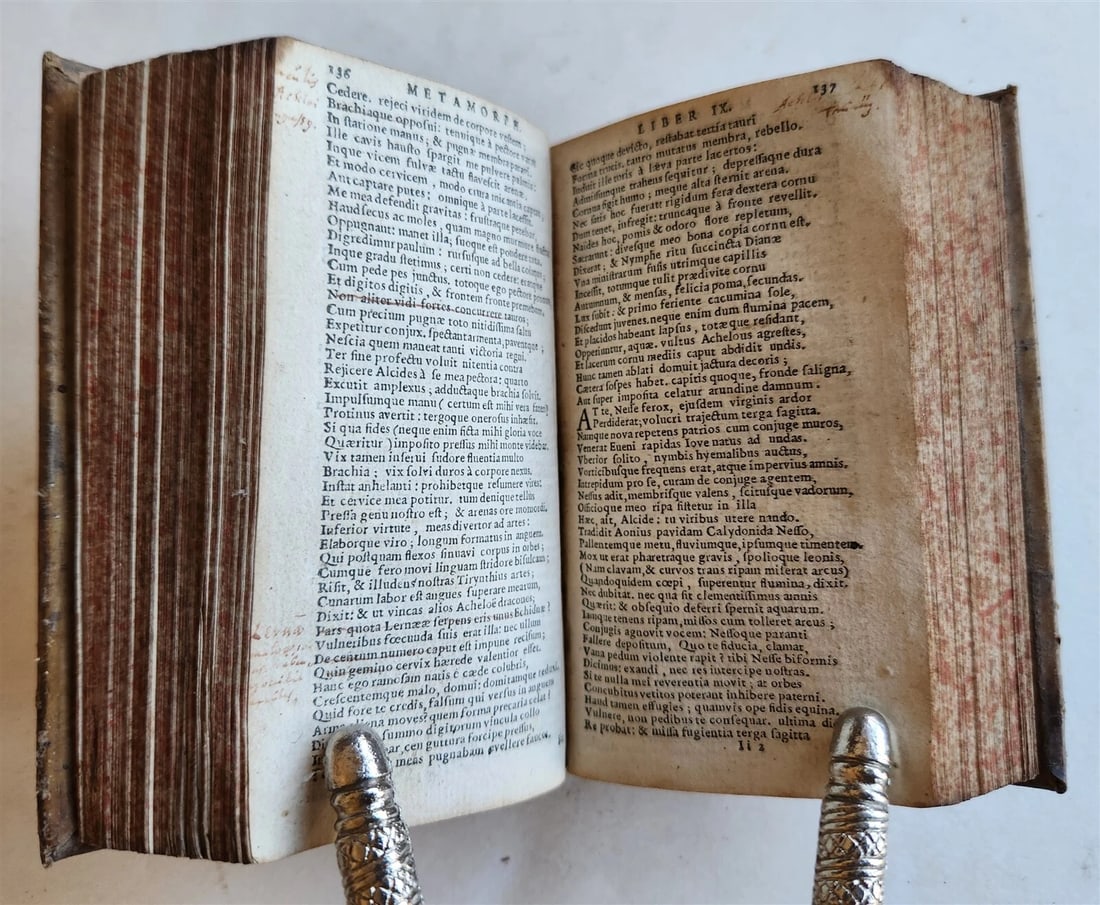 136
METAMORPH.
Cedere. rejeci viridem de corpore vestem;
Brachiaque opposui: tenuique à pectore varas
In statione manus; & pugnæ membra paravi.
Ille cavis hausto spargit me pulvere palmis:
Inque vicem fulvæ tactu flavescit arenæ.
Et modo cervicem, modo crura micantia captat;
Aut captare putes; omnique à parte lacessit.
Me mea defendit gravitas: frustraque petebar,
Haud secus ac moles, quam magno murmure
Oppugnant: manet illa; suoque est pondere tuta.
Digredimur paulum: rursusque ad bella coimus;
Inque gradu stetimus; certi non cedere: eratque
Cum pede pes junctus. totoque ego pectore pronus
Et digitos digitis, & frontem fronte premebam.
Non aliter vidi fortes concurrere tauros;
Cum precium pugnæ toto nitidissima saltu
Expetitur conjux. spectant armenta, paventque,
Nescia quem maneat tanti victoria regni.
Ter sine profectu voluit nitentia contra
Rejicere Alcides à se mea pectora: quarto
Excutit amplexus; adductaque brachia solvit.
Impulsumque manu (certum est mihi vera fateri)
Protinus avertit: tergoque onerosus inhæsit.
Si qua fides (neque enim ficta mihi gloria voce
Quæritur) imposito pressus mihi monte videbar.
Vix tamen inserui sudore fluentia multo
Brachia; vix solvi duros à corpore nexus.
Instat anhelanti: prohibetque resumere vires:
Et cervice mea potitur. tum denique tellus
Pressa genu nostro est; & arenas ore momordi.
Inferior virtute, meas divertor ad artes:
Elaborque viro; longum formatus in anguem.
Qui postquam flexos sinuavi corpus in orbes;
Cumque fero movi linguam stridore bisulcam;
Risit, & illudens nostras Tirynthius artes;
Cunarum labor est angues superare mearum,
Dixit: & ut vincas alios Acheloë dracones;
Pars quota Lernææ serpens eris unus Echidnæ?
Vulneribus fœcunda suis erat illa: nec ullum
De centum numero caput est impune recisum;
Quin gemino cervix hærede valentior esset.
Hanc ego ramosam natis è cæde colubris,
Crescentemque malo, domui: domitamque
Quid fore te credas, falsum qui versus in anguem
Arma aliena moves? quem forma precaria celat?
summo digitorum vincula collo
ar, ceu guttura forcipe pressus,
meas pugnabam evellere fauces.
LIBER IX.
137
Sic quoque devicto, restabat tertia tauri
Forma trucis. tauro mutatus membra, rebello.
Induit ille toris à læva parte lacertos:
Admissumque trahens sequitur; depressaque dura
Cornua figit humo; meque alta sternit arena.
Nec satis hoc fuerat: rigidum fera dextera cornu
Dum tenet, infregit: truncaque à fronte revellit.
Naides hoc, pomis & odoro flore repletum,
Sacrarunt: divesque meo bona copia cornu est.
Dixerat; & Nymphe ritu succincta Dianæ
Vna ministrarum fusis utrimque capillis
Incessit, totumque tulit prædivite cornu
Autumnum, & mensas, felicia poma, secundas.
Lux subit: & primo feriente cacumina sole,
Discedunt juvenes. neque enim dum flumina pacem,
Et placidos habeant lapsus, totæque residant,
Opperiuntur, aquæ. vultus Achelous agrestes,
Et lacerum cornu mediis caput abdidit undis.
Hunc tamen ablati domuit jactura decoris;
Cætera sospes habet. capitis quoque, fronde saligna,
Aut super imposita celatur arundine damnum.
AT te, Nesse ferox, ejusdem virginis ardor
Perdiderat; volucri trajectum terga sagitta.
Namque nova repetens patrios cum conjuge muros,
Venerat Eueni rapidas Iove natus ad undas.
Vberior solito, nymbis hyemalibus auctus,
Vorticibusque frequens erat, atque impervius amnis.
Intrepidum pro se, curam de conjuge agentem,
Nessus adit, membrisque valens, scitusque vadorum,
Officioque meo ripa sistetur in illa
Hæc, ait, Alcide: tu viribus utere nando.
Tradidit Aonius pavidam Calydonida Nesso,
Pallentemque metu, fluviumque, ipsumque timentem.
Mox ut erat pharetraque gravis, spolioque leonis,
(Nam clavam, & curvos trans ripam miserat arcus)
Quandoquidem cœpi, superentur flumina, dixit.
Nec dubitat. nec qua sit clementissimus amnis
Quærit: & obsequio deferri spernit aquarum.
Iamque tenens ripam, missos cum tolleret arcus;
Conjugis agnovit vocem: Nessoque paranti
Fallere depositum, Quo te fiducia, clamat,
Vana pedum violente rapit? tibi Nesse biformis
Dicimus: exaudi, nec res intercipe nostras.
Si te nulla mei reverentia movit; at orbes
Concubitus vetitos poterant inhibere paterni.
Haud tamen effugies; quamvis ope fidis equina.
Vulnere, non pedibus te consequar. ultima di
Re probat: & missa fugientia terga sagitta
Ii 2